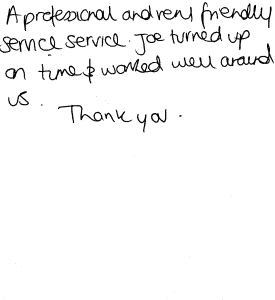 A professional and very friendly
service service. Joe turned up
on time & worked well around
us.
Thank you.